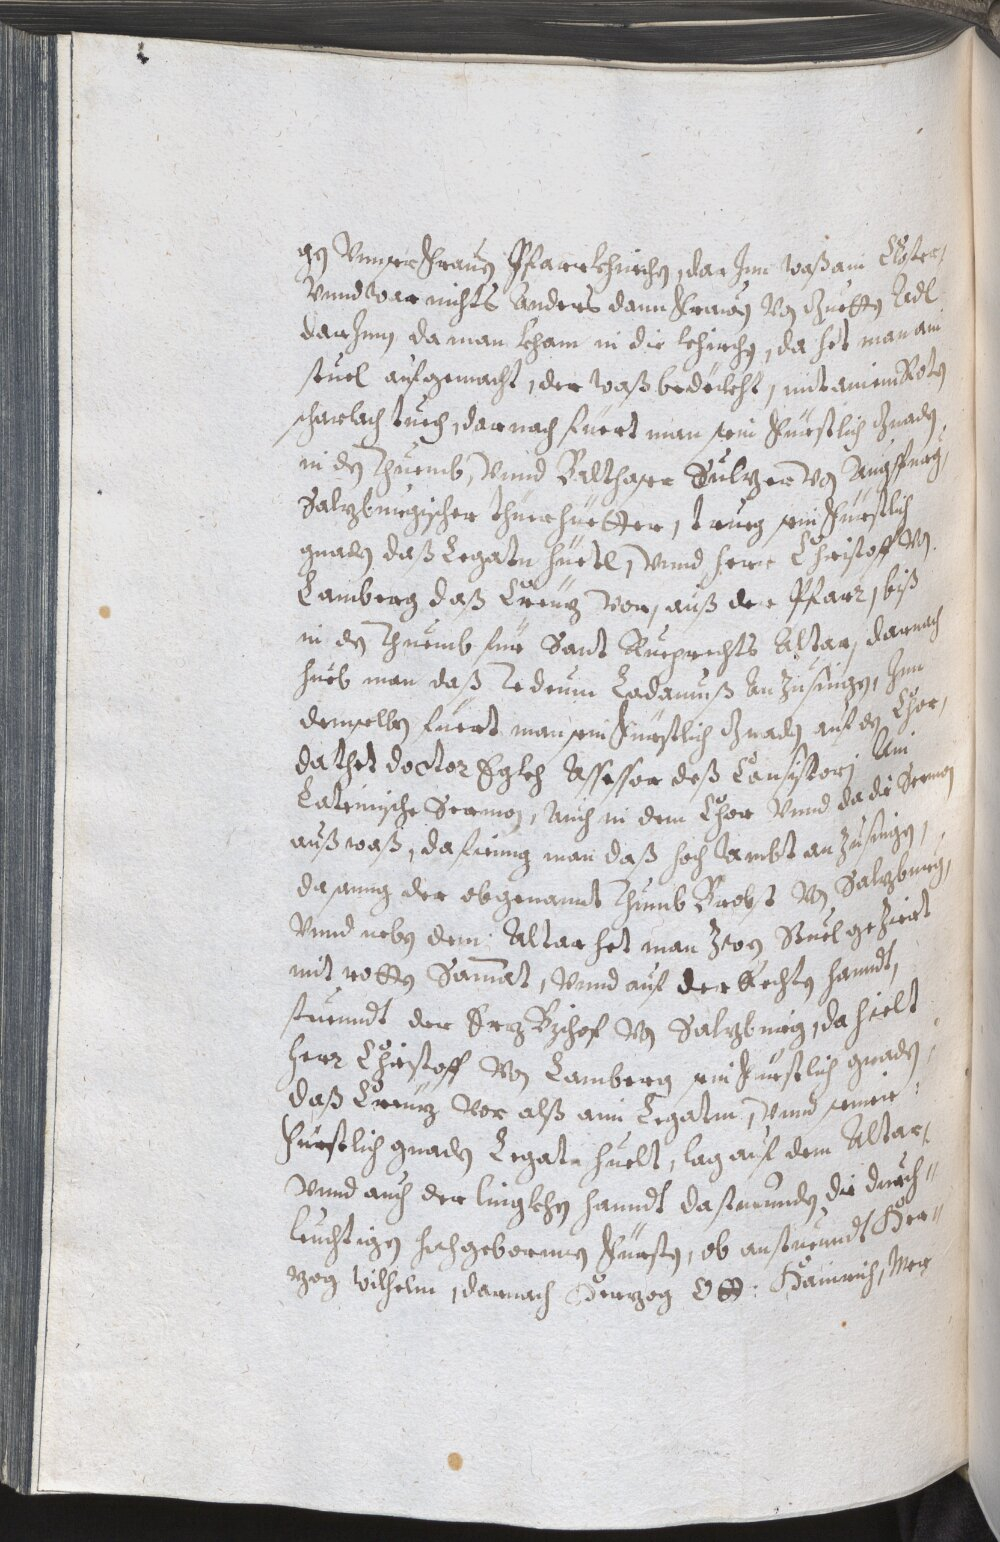 gen Unnser Frauen Pfarrkhirchen, dar Inn waß ain Closter,
Unnd war nichts Anders dann Frauen Von Guetten Adl
darInn, da man kham in die khirchen, da het man ain
stuel aufgemacht, der waß bedeckht, mit ainem Roten
scharlach tuech, darnach füert man sein Fürstlich Gnaden
in den Thuemb, Unnd Balthaser Sulzer Von Augspurg,
Salzburgischer thüerhüetter, trueg sein Fürstlich
gnaden daß Legatn hüetl, Unnd herr Christoff Von
Lamberg daß Creüz Vor, auß der Pfarr, biß
in den Thuemb für Sant Ruepprechts Altar, darnach
hueb man daß Tedeum Lodamuß An Zusingen, Inn
demselben füert man sein Fürstlich Gnaden auf den Chor,
da thet doctor Egkh Assessor deß Consistorj Ain
Lateinische Sermon, Auch in dem Chor Unnd da die Sermon
auß waß, da fieng man daß hoch Ambt an Zusingen,
da sanng der obgenannt Thumb Brobst Von Salzburg,
Unnd neben dem Altar het man Zwen Stuel geZiert
mit rotten Samat, Unnd auf der Rechten hanndt,
stuenndt der ErzBischof Von Salzburg, da hielt
herr Christoff Von Lamberg sein Fürstlich gnaden,
daß Creüz Vor alß ain Legaten, Unnd seiner
Fürstlich gnaden Legatn huett, lag auf dem Altar,
Unnd auf der lingkhen hanndt da stuennden die durch"
leuchtigen hochgebornnen Fürsten, ob anstuenndt Her"
zog wilhelm, darnach Herzog Ott: Hainrich, Mer